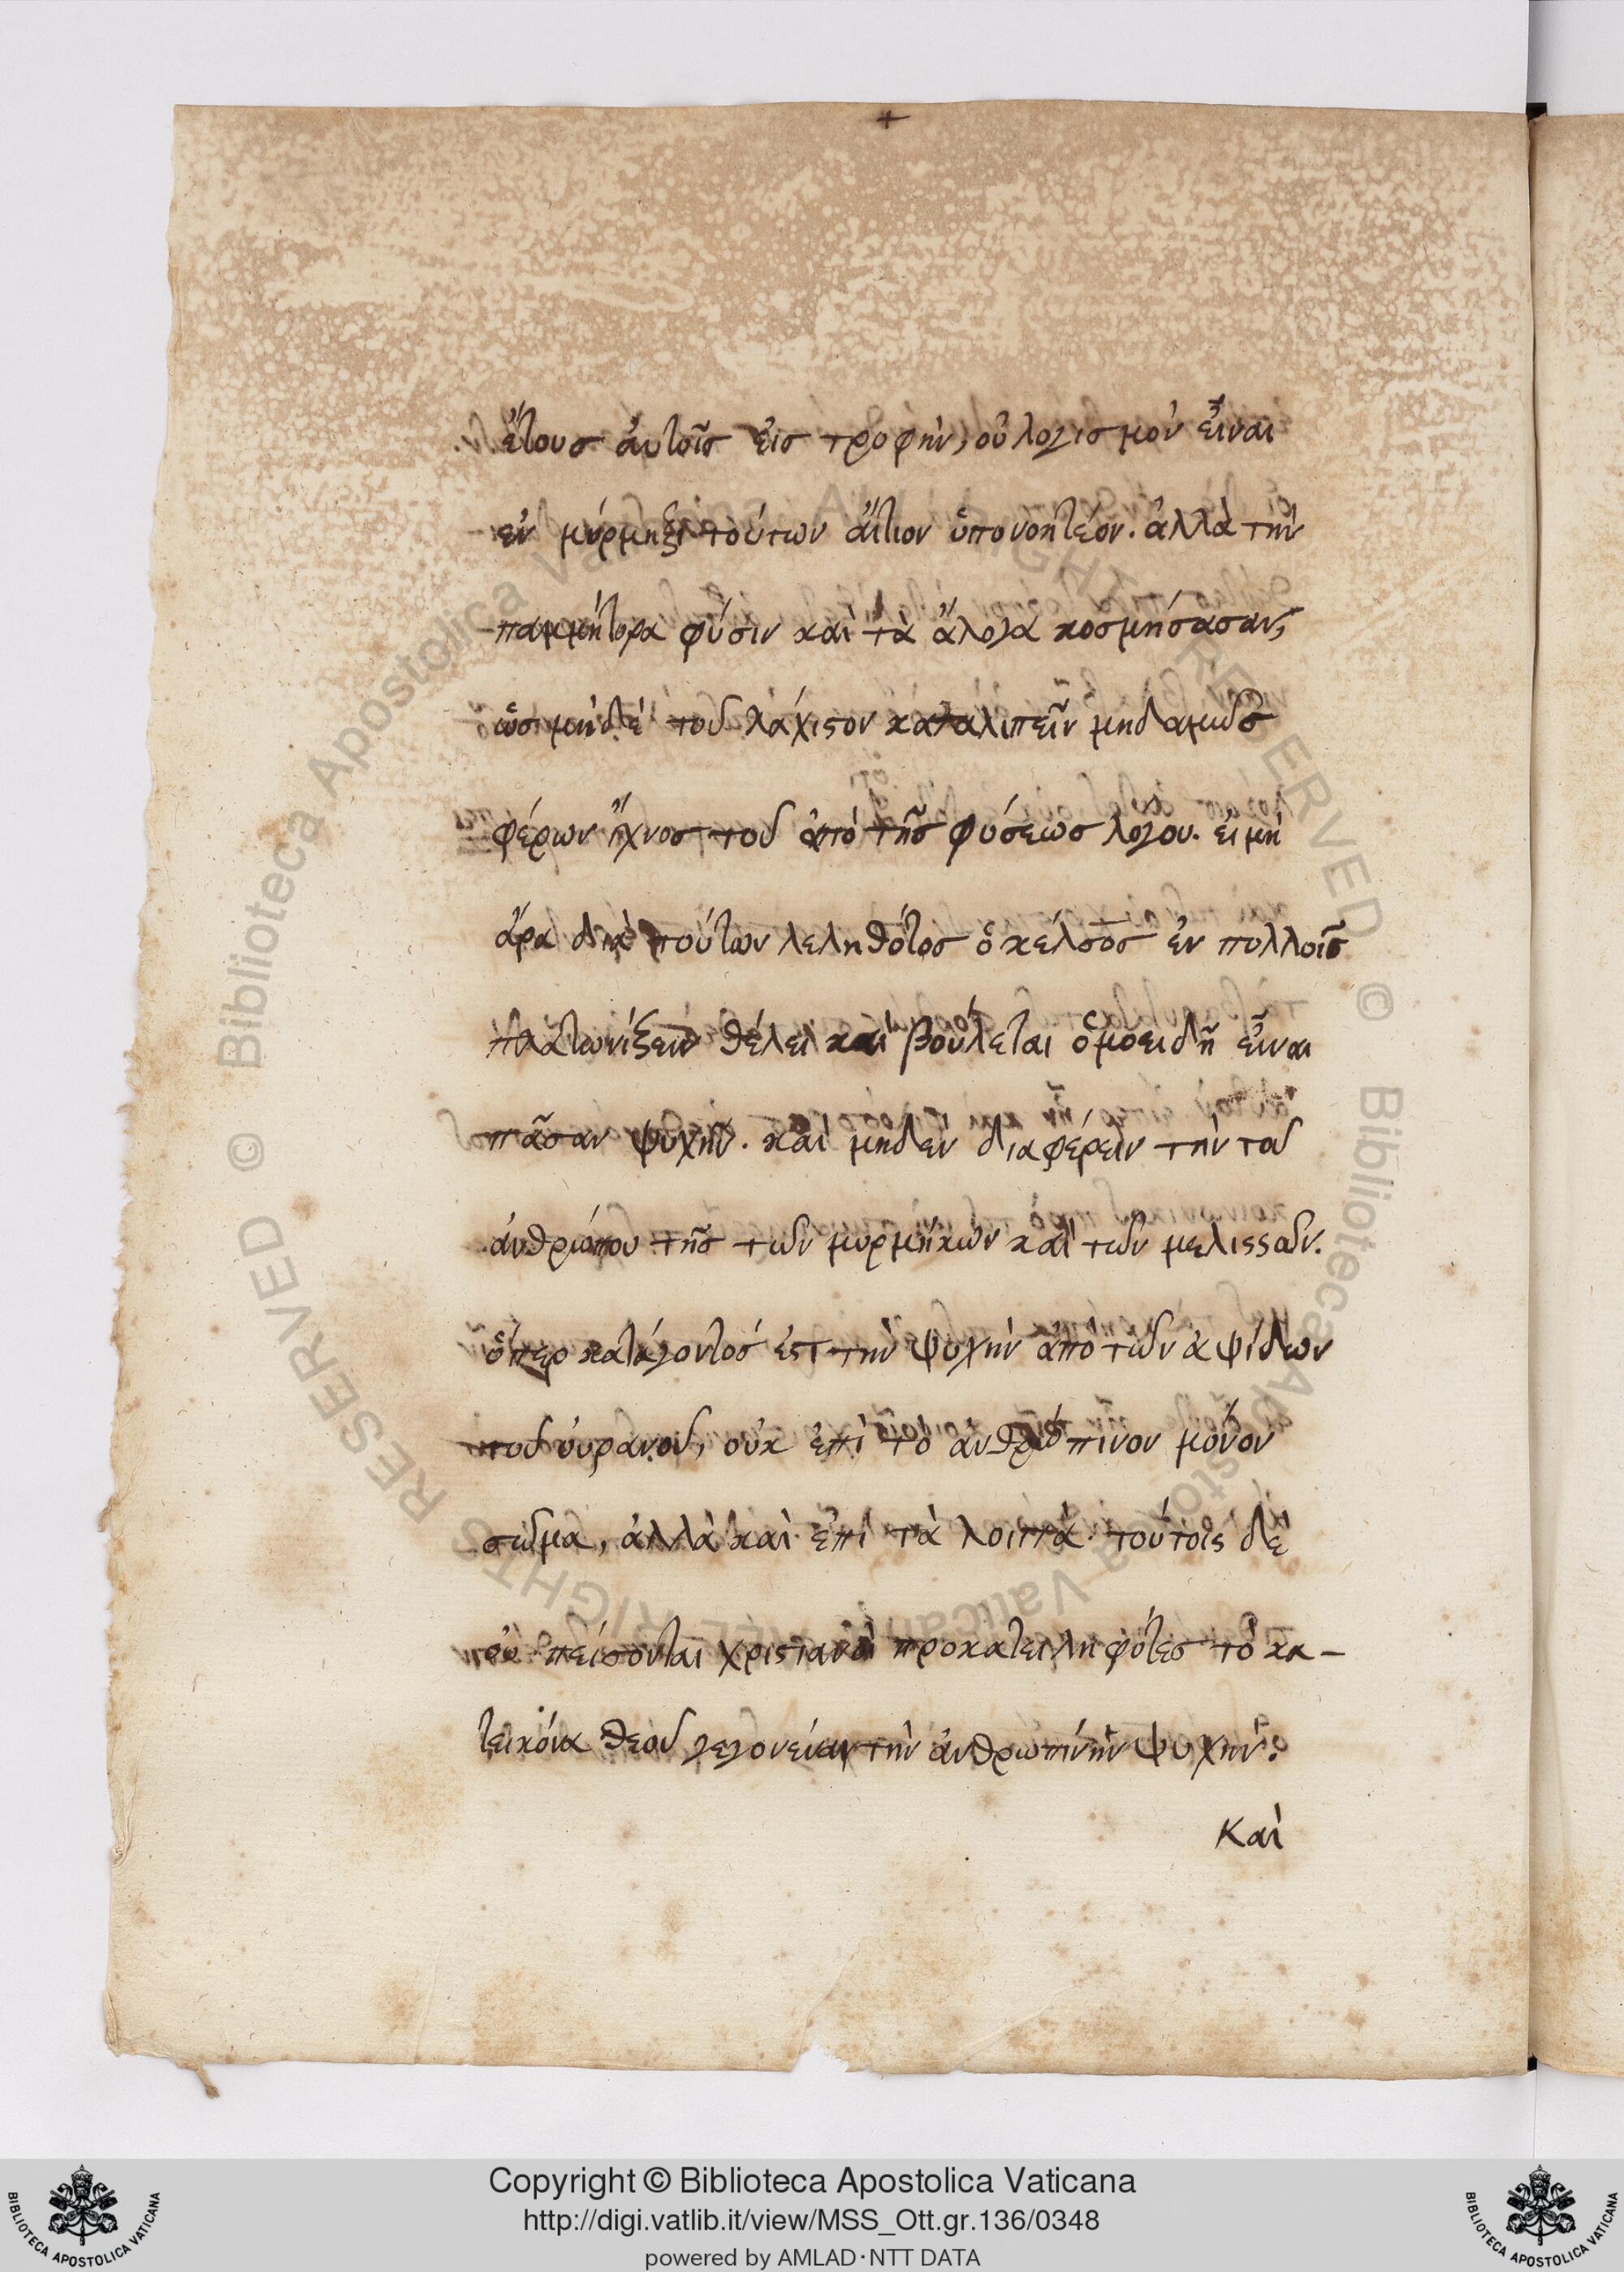 ἔτους ἀυτοῖς ἐις τροφὴν, οὐ λογισμὸν εἶναι
ἐν μύρμηξι τούτων ἄιτιον ὑπονοητέον. ἀλλὰ τὴν
παμμήτορα φύσιν καὶ τὰ ἄλογα κοσμήσασαν,
ὡς μηδὲ τοὐλάχιστον καταλιπεῖν μηδαμῶς
φέρων ἴχνος τοῦ ἀπὸ τῆς φύσεως λόγου. εἰ μὴ
ἄρα διὰ τούτων λεληθότος ὁ κέλσος ἐν πολλοῖς
πλατωνίζειν θέλει καὶ βούλεται ὁμοειδῆ εἶναι
πᾶσαν ψυχήν. καὶ μηδὲν διαφέρειν τὴν τοῦ
ἀνθρώπου τῆς τῶν μυρμήκων καὶ τῶν μελισσῶν.
ὅπερ κατάγοντός ἐστι τὴν ψυχὴν ἀπὸ τῶν ἀψίδων
τοῦ ὀυρανοῦ, οὐκ ἐπὶ τὸ ἀνθρώπινον μόνον
σῶμα, ἀλλὰ καὶ ἐπὶ τὰ λοιπὰ. τούτοις δὲ
οὐ πείσονται χριστιανοὶ προκατειληφότες τὸ κα-
τεικόνα θεοῦ γεγονέναι τὴν ἀνθρωπίνην ψυχήν.
Καὶ
Copyright © Biblioteca Apostolica Vaticana
http://digi.vatlib.it/view/MSS_Ott.gr.136/0348
powered by AMLAD·NTT DATA
BIBLIOTECA APOSTOLICA VATICANA
BIBLIOTECA APOSTOLICA VATICANA